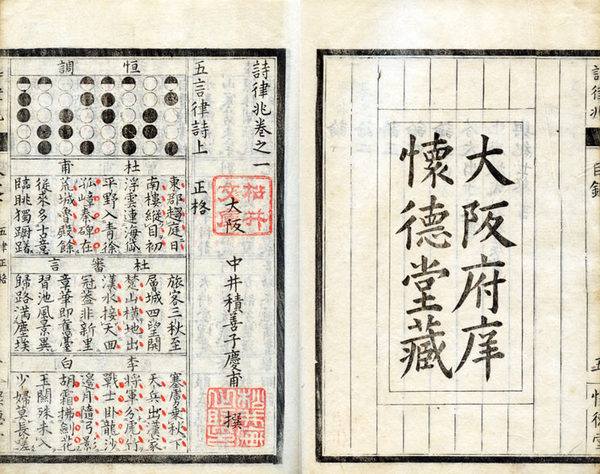 詩律兆
目錄
五
懷德堂
大阪府庠
懷德堂藏
詩律兆卷之一
大阪 中井積善子慶甫 撰
五言律詩上 正格
恒調
杜甫
東郡趨庭日
南樓縱目初
浮雲連海岱
平野入青徐
孤嶂秦碑在
荒城魯殿餘
從來多古意
臨眺獨躊躇
杜審言
旅客三秋至
層城四望開
楚山橫地出
漢水接天回
冠蓋非新里
章華即舊臺
習池風景異
歸路滿塵埃
李白
塞虜乘秋下
天兵出漢家
將軍分虎竹
戰士臥龍沙
邊月隨弓影
胡霜拂劍花
玉關殊未入
少婦莫長嗟
五律正格